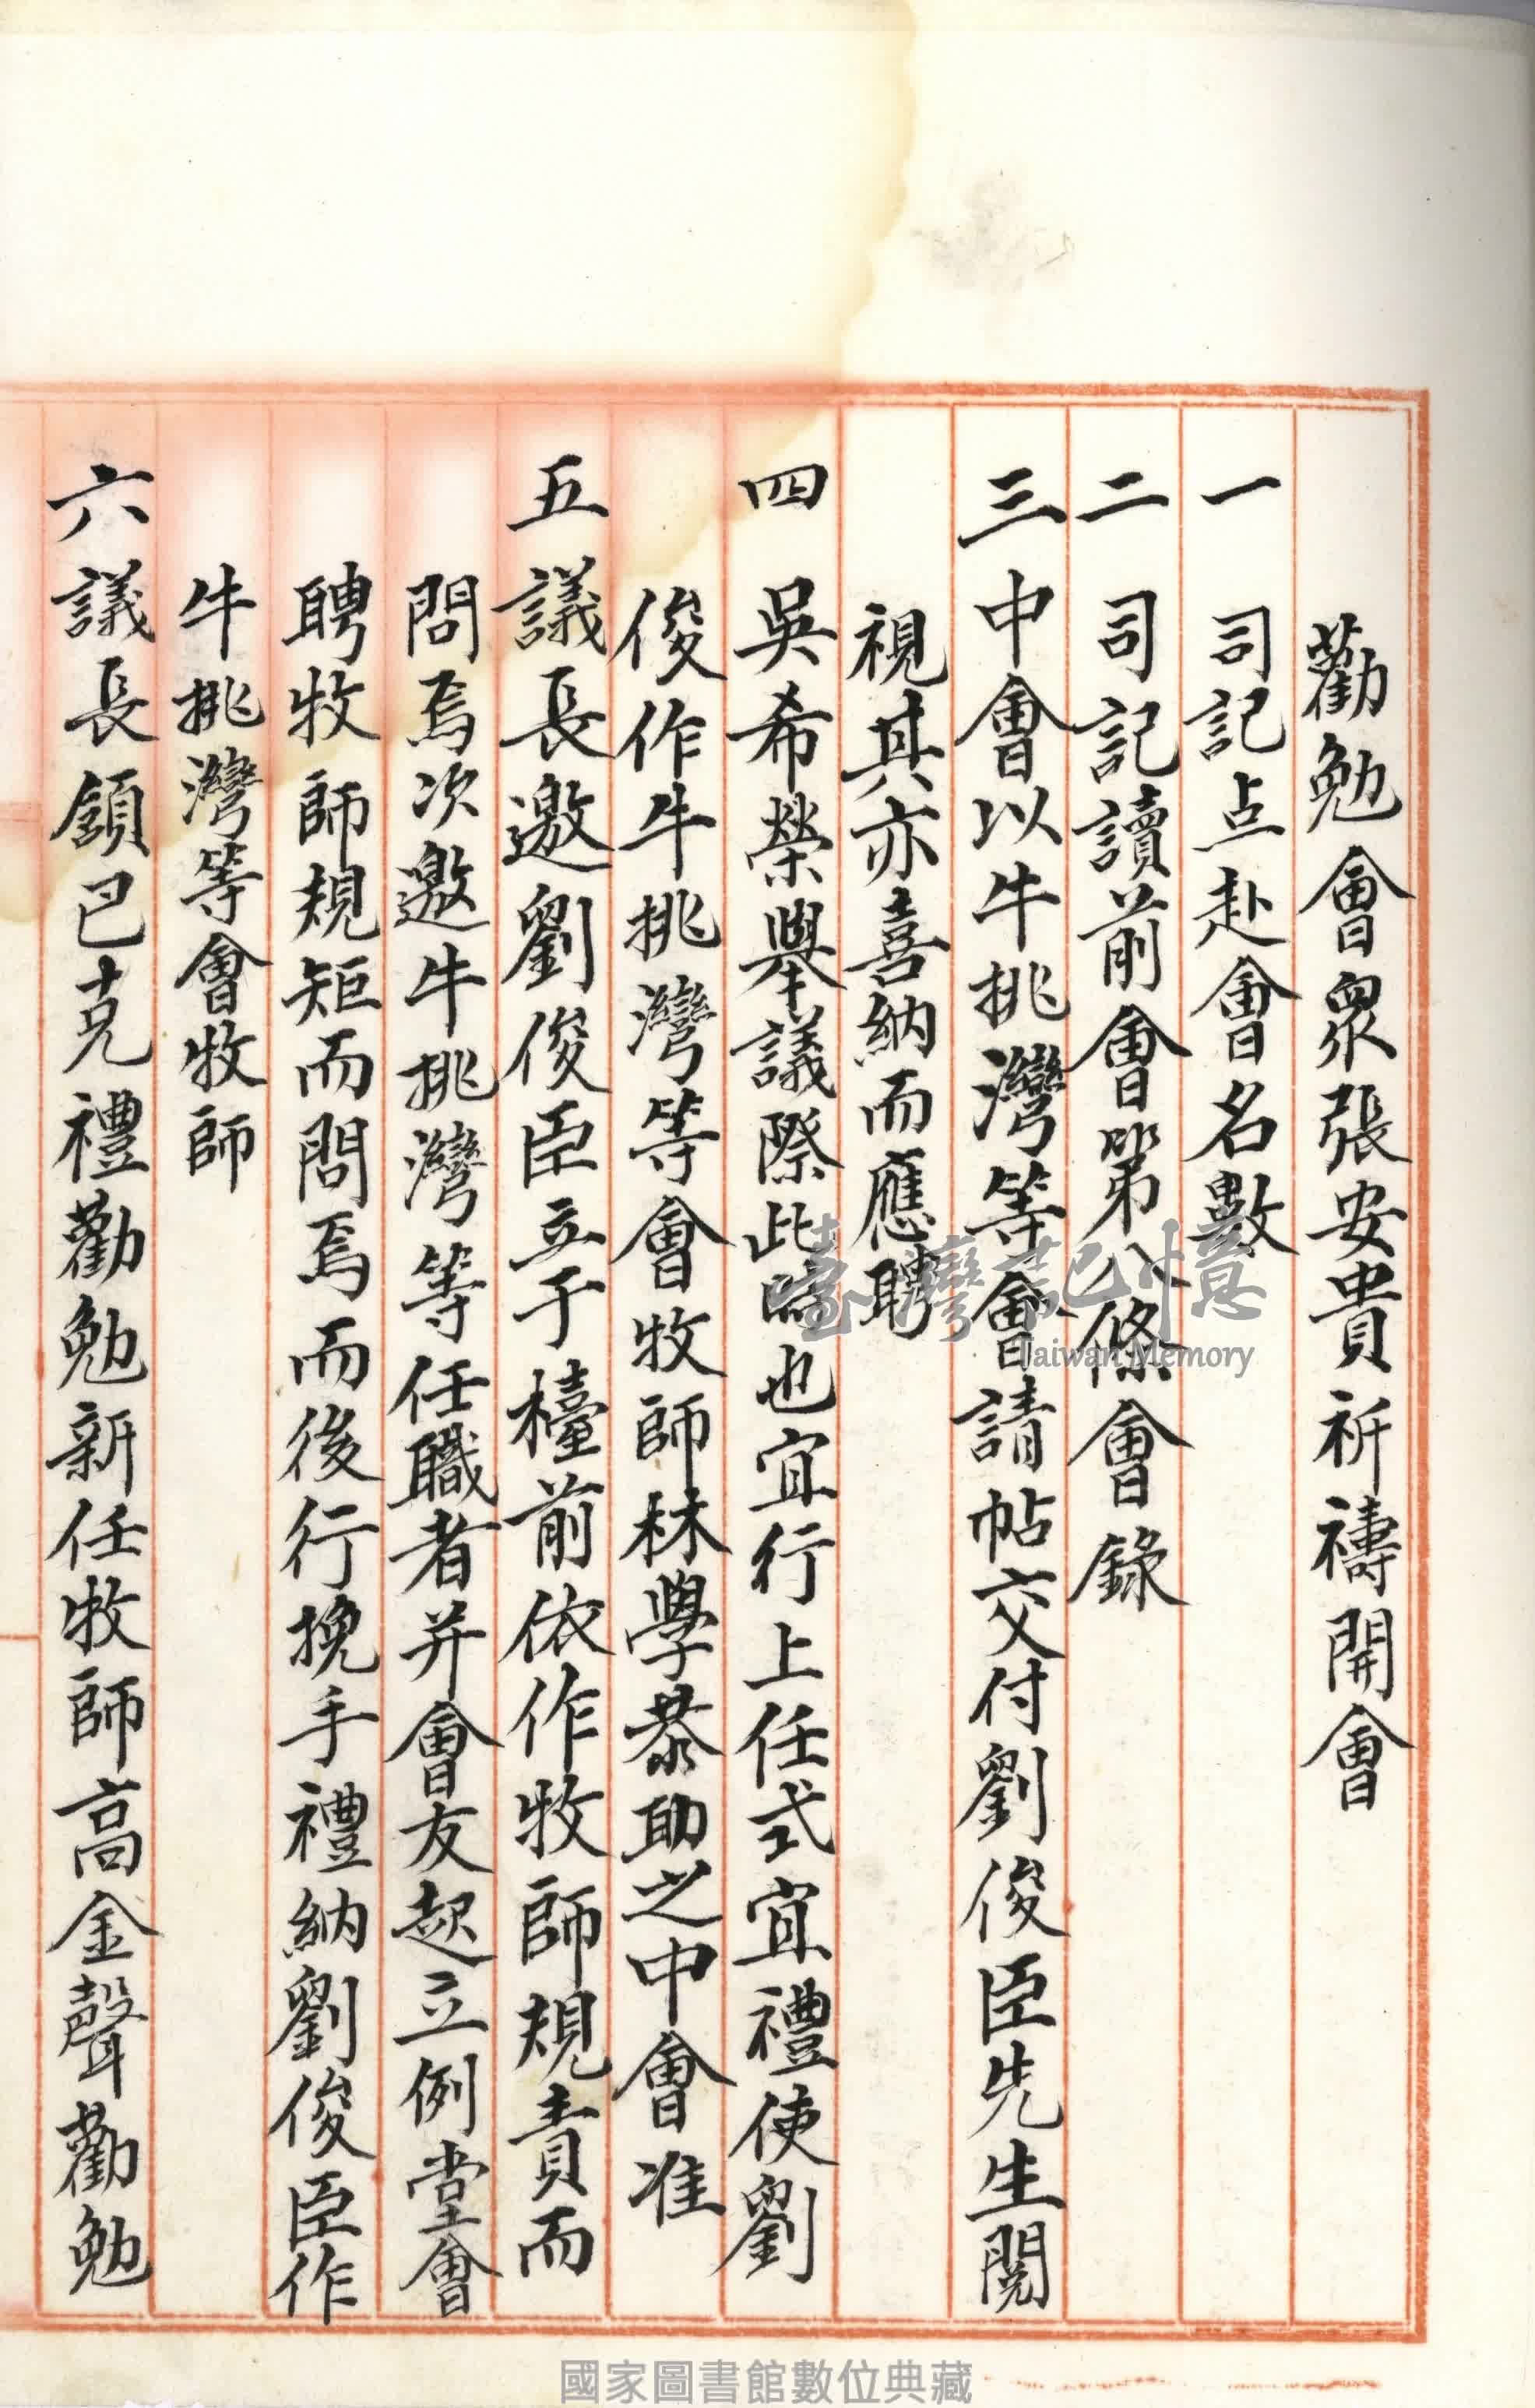 勸勉會眾張安貴祈禱開會
一 司記点赴會名數
二 司記讀前會第八條會錄
三 中會以牛挑灣等會請帖交付劉俊臣先生閱
視其亦喜納而應聘
四 吳希榮舉議際此時也宜行上任式宜禮使劉
俊作牛挑灣等會牧師林學恭助之中會准
五 議長邀劉俊臣立于檯前依作牧師規責而
問焉次邀牛挑灣等任職者并會友起立例堂會
聘牧師規矩而問焉而後行挽手禮納劉俊臣作
牛挑灣等會牧師
六 議長領巴克禮勸勉新任牧師高金聲勸勉
臺灣記憶
Taiwan Memory
國家圖書館數位典藏